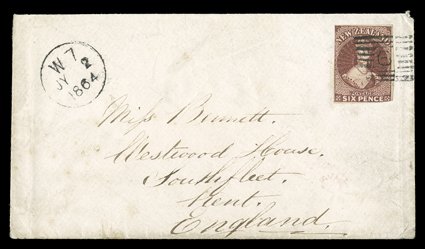 W 7
JY 2
1864
NEW ZEALAND
POSTAGE
SIX PENCE
Miss Bennett.
Westwood House.
Southfleet.
Kent.
England.